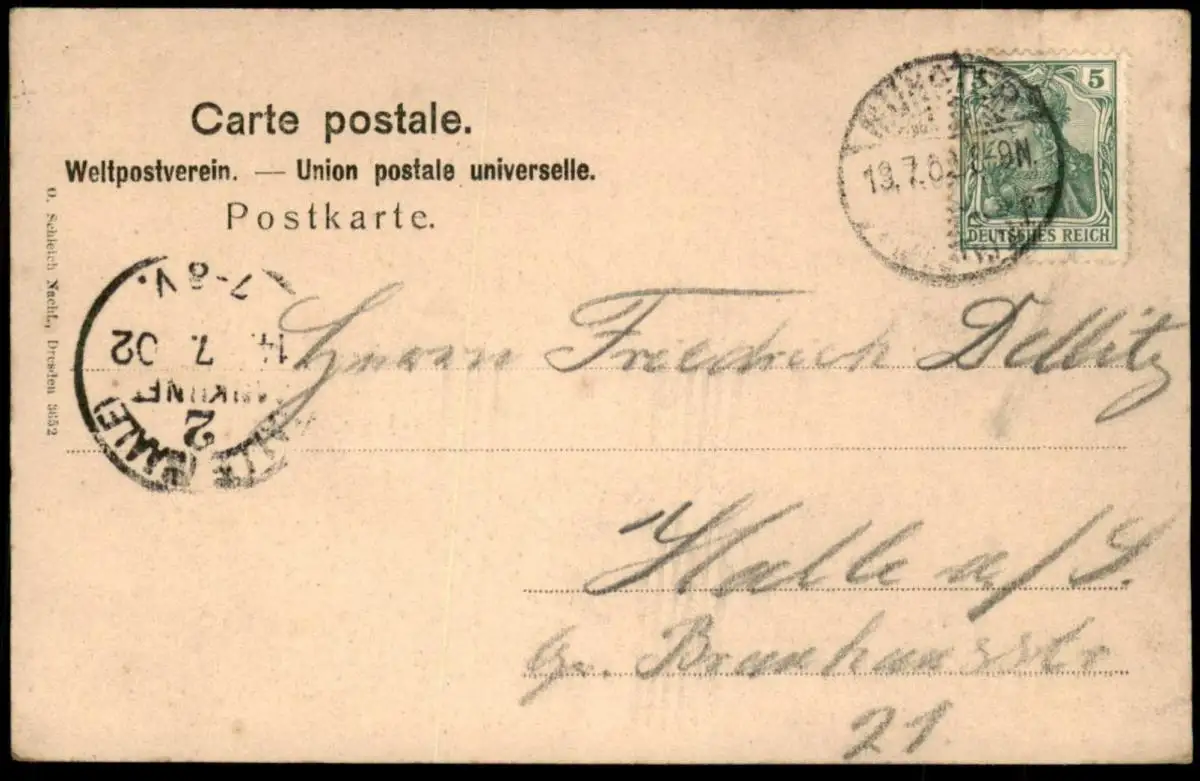 Carte postale.
Weltpostverein. — Union postale universelle.
Postkarte.
O. Schleich Nachf., Dresden 3652
5
DEUTSCHES REICH
13.7.02. 8-9N.
7-8V.
14. 7. 02
ANKUNFT
2
HALLE (SAALE)
Herrn Friedrich Dellitz
Halle a/S.
Gr. Brauhausstr
21